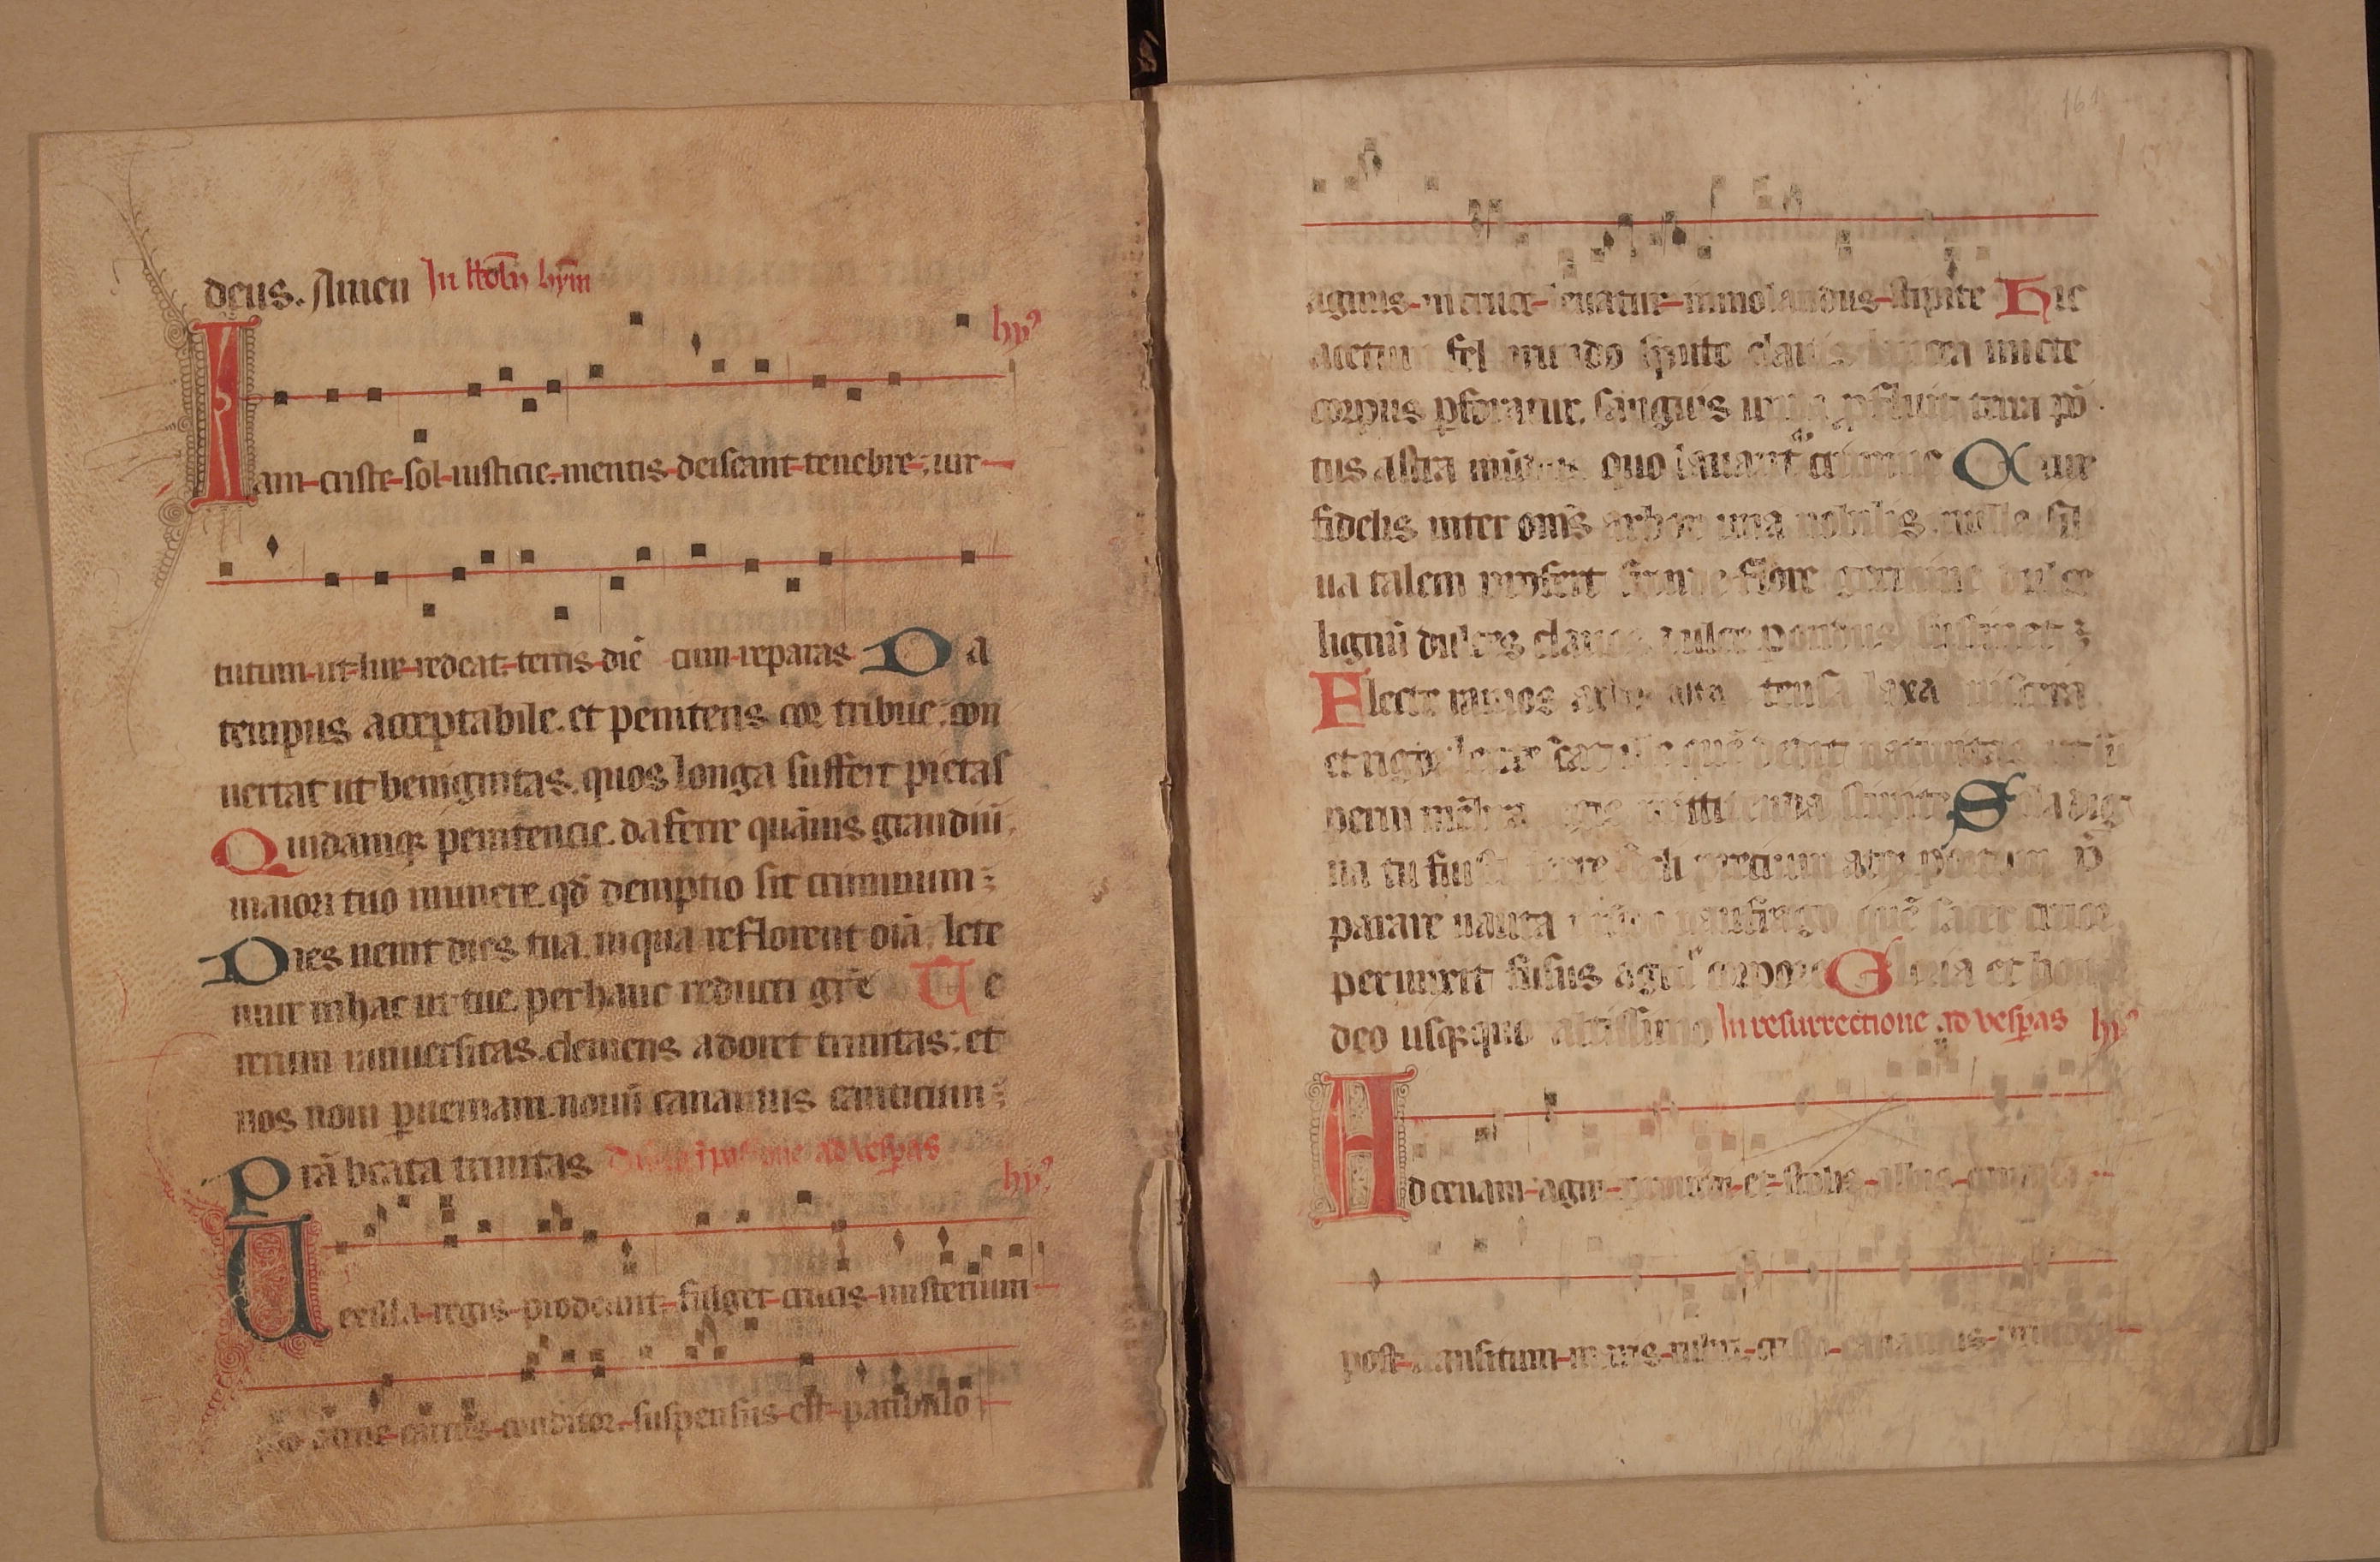 deus. Amen In hebdoa hym
hym9
Iam criste sol iusticie. mentis deiscant tenebre; uir
tutum ut lux redeat. terris diē cum reparas Da
tempus acceptabile. et penitens cor tribue. con
uertat ut benignitas. quos longa suffert pietas
Quidamqꝫ penitencie. da ferre quāuis grandiū.
maiori tuo munere. qđ demptio fit criminum:
Dies uenit dies tua. in qua reflorent oīa. lete
mur in hac ut tue. per hanc reducti grē Te
rerum uniuersitas. clemens adoret trinitas: et
nos noui p ueniam. nouū canamus canticum:
Prā beata trinitas ad vespas
hy9
Uexilla regis prodeunt. fulget crucis misterium
quo carne carnis conditor. suspensus est patibulo
161
agnus in cruce leuatur immolandus stipite Hic
acetum fel arundo sputo clauis lancea mite
corpus pforatur. sanguis unda pfluit terra pō
tus astra mūdus quo lauant crimine Crux
fidelis inter om̄s arbor una nobilis nulla sil
ua talem profert fronde flore germine dulce
lignū dulces clauos dulce pondus sustinet:
Flecte ramos arbor alta tensa laxa uiscera
et rigor lentescat ille quē dedit natiuitas ut su
perni mēbra regis mitti tendas stipite Sola dig
na tu fuisti ferre scli precium atqꝫ portum p̄
parare nauta mūdo naufrago quē sacer cruor
perunxit fusus agni corpore Gloria et honor
deo usqꝫquo altissimo In resurrectione ad vespas hy9
Ad cenam agni prouidi et stolis albis candidi
post transitum maris rubri cristo canamus principi